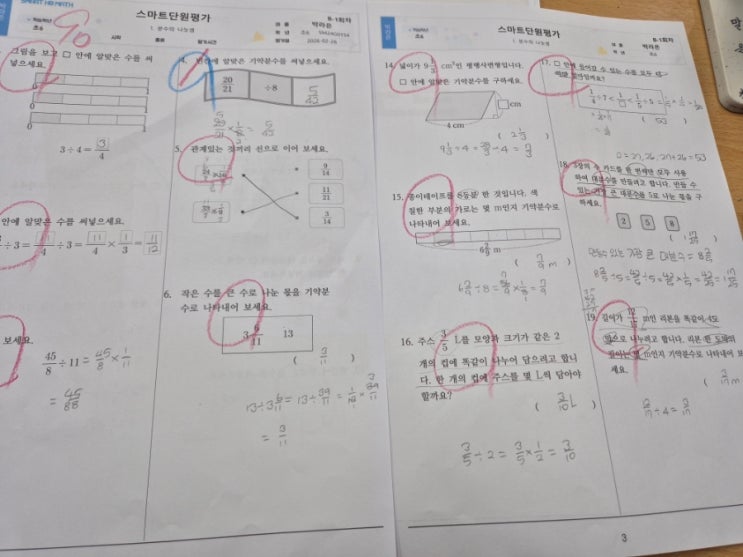 스마트단원평가
1. 분수의 나눗셈
B-1회차
박라온
90
그림을 보고 □ 안에 알맞은 수를 써
넣으세요.
0 1
0 1
0 1
3÷4=3/4
안에 알맞은 수를 써넣으세요.
÷3=11/4÷3=11/4×1/3=11/12
보세요.
45/8÷11=45/8×1/11
=45/88
4. 빈칸에 알맞은 기약분수를 써넣으세요.
20/21 ÷8 5/42
5. 관계있는 것끼리 선으로 이어 보세요.
9/14
11/21
3/14
6. 작은 수를 큰 수로 나눈 몫을 기약분
수로 나타내어 보세요.
3 6/11 13
( 3/11 )
=3/11
스마트단원평가
1. 분수의 나눗셈
B-1회차
박라온
14. 넓이가 9 1/3 cm²인 평행사변형입니다.
□ 안에 알맞은 기약분수를 구하세요.
□cm
4 cm
( 2 1/3 )
9 1/3÷4=28/3÷4=7/3
15. 종이테이프를 8등분 한 것입니다. 색
칠한 부분의 가로는 몇 m인지 기약분수로
나타내어 보세요.
6 2/9 m
( 7/9 m )
16. 주스 3/5 L를 모양과 크기가 같은 2
개의 컵에 똑같이 나누어 담으려고 합니
다. 한 개의 컵에 주스를 몇 L씩 담아야
할까요?
( 3/10 L )
3/5÷2=3/5×1/2=3/10
17. □ 안에 들어갈 수 있는 수를 모두
( 53 )
□=27, 26, 27+26=53
18. 3장의 수 카드를 한 번씩만 모두 사용
하여 대분수를 만들려고 합니다. 만들 수
있는 가장 큰 대분수를 5로 나눈 몫을 구
하세요.
2 5 8
( 1 17/25 )
만들수 있는 가장 큰 대분수=8 2/5
8 2/5÷5=42/5÷5=42/5×1/5=42/25=1 17/25
19. 길이가 12/17 m인 리본을 똑같이 4도
막으로 나누려고 합니다. 리본 한 도막의
길이는 몇 m인지 기약분수로 나타내어 보
세요.
( 3/17 m )
12/17÷4=3/17
3